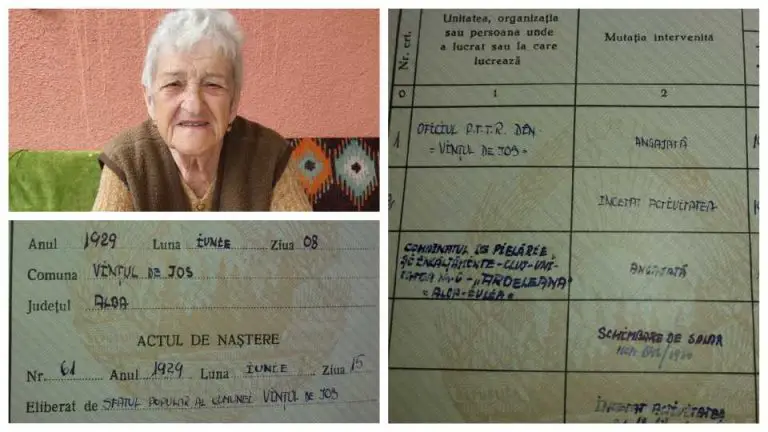 Anul 1929 Luna IUNIE Ziua 08
Comuna VINȚUL DE JOS
Județul ALBA
ACTUL DE NAȘTERE
Nr. 61 Anul 1929 Luna IUNIE Ziua 15
Eliberat de SFATUL POPULAR AL COMUNEI VINȚUL DE JOS
Nr. crt.
Unitatea, organizația
sau persoana unde
a lucrat sau la care
lucrează
Mutația intervenită
0 1 2
1 OFICIUL P.T.T.R. DIN ANGAJATĂ
= VINȚUL DE JOS =
INCETAT ACTIVITATEA
COMBINATUL DE PIELĂRIE
ȘI ÎNCĂLȚĂMINTE-CLUJ-UNI-
TATEA NR. 6 - "ARDELEANA"
= ALBA-IULIA =
ANGAJATĂ
SCHIMBARE DE SALAR
INCETAT ACTIVITATEA